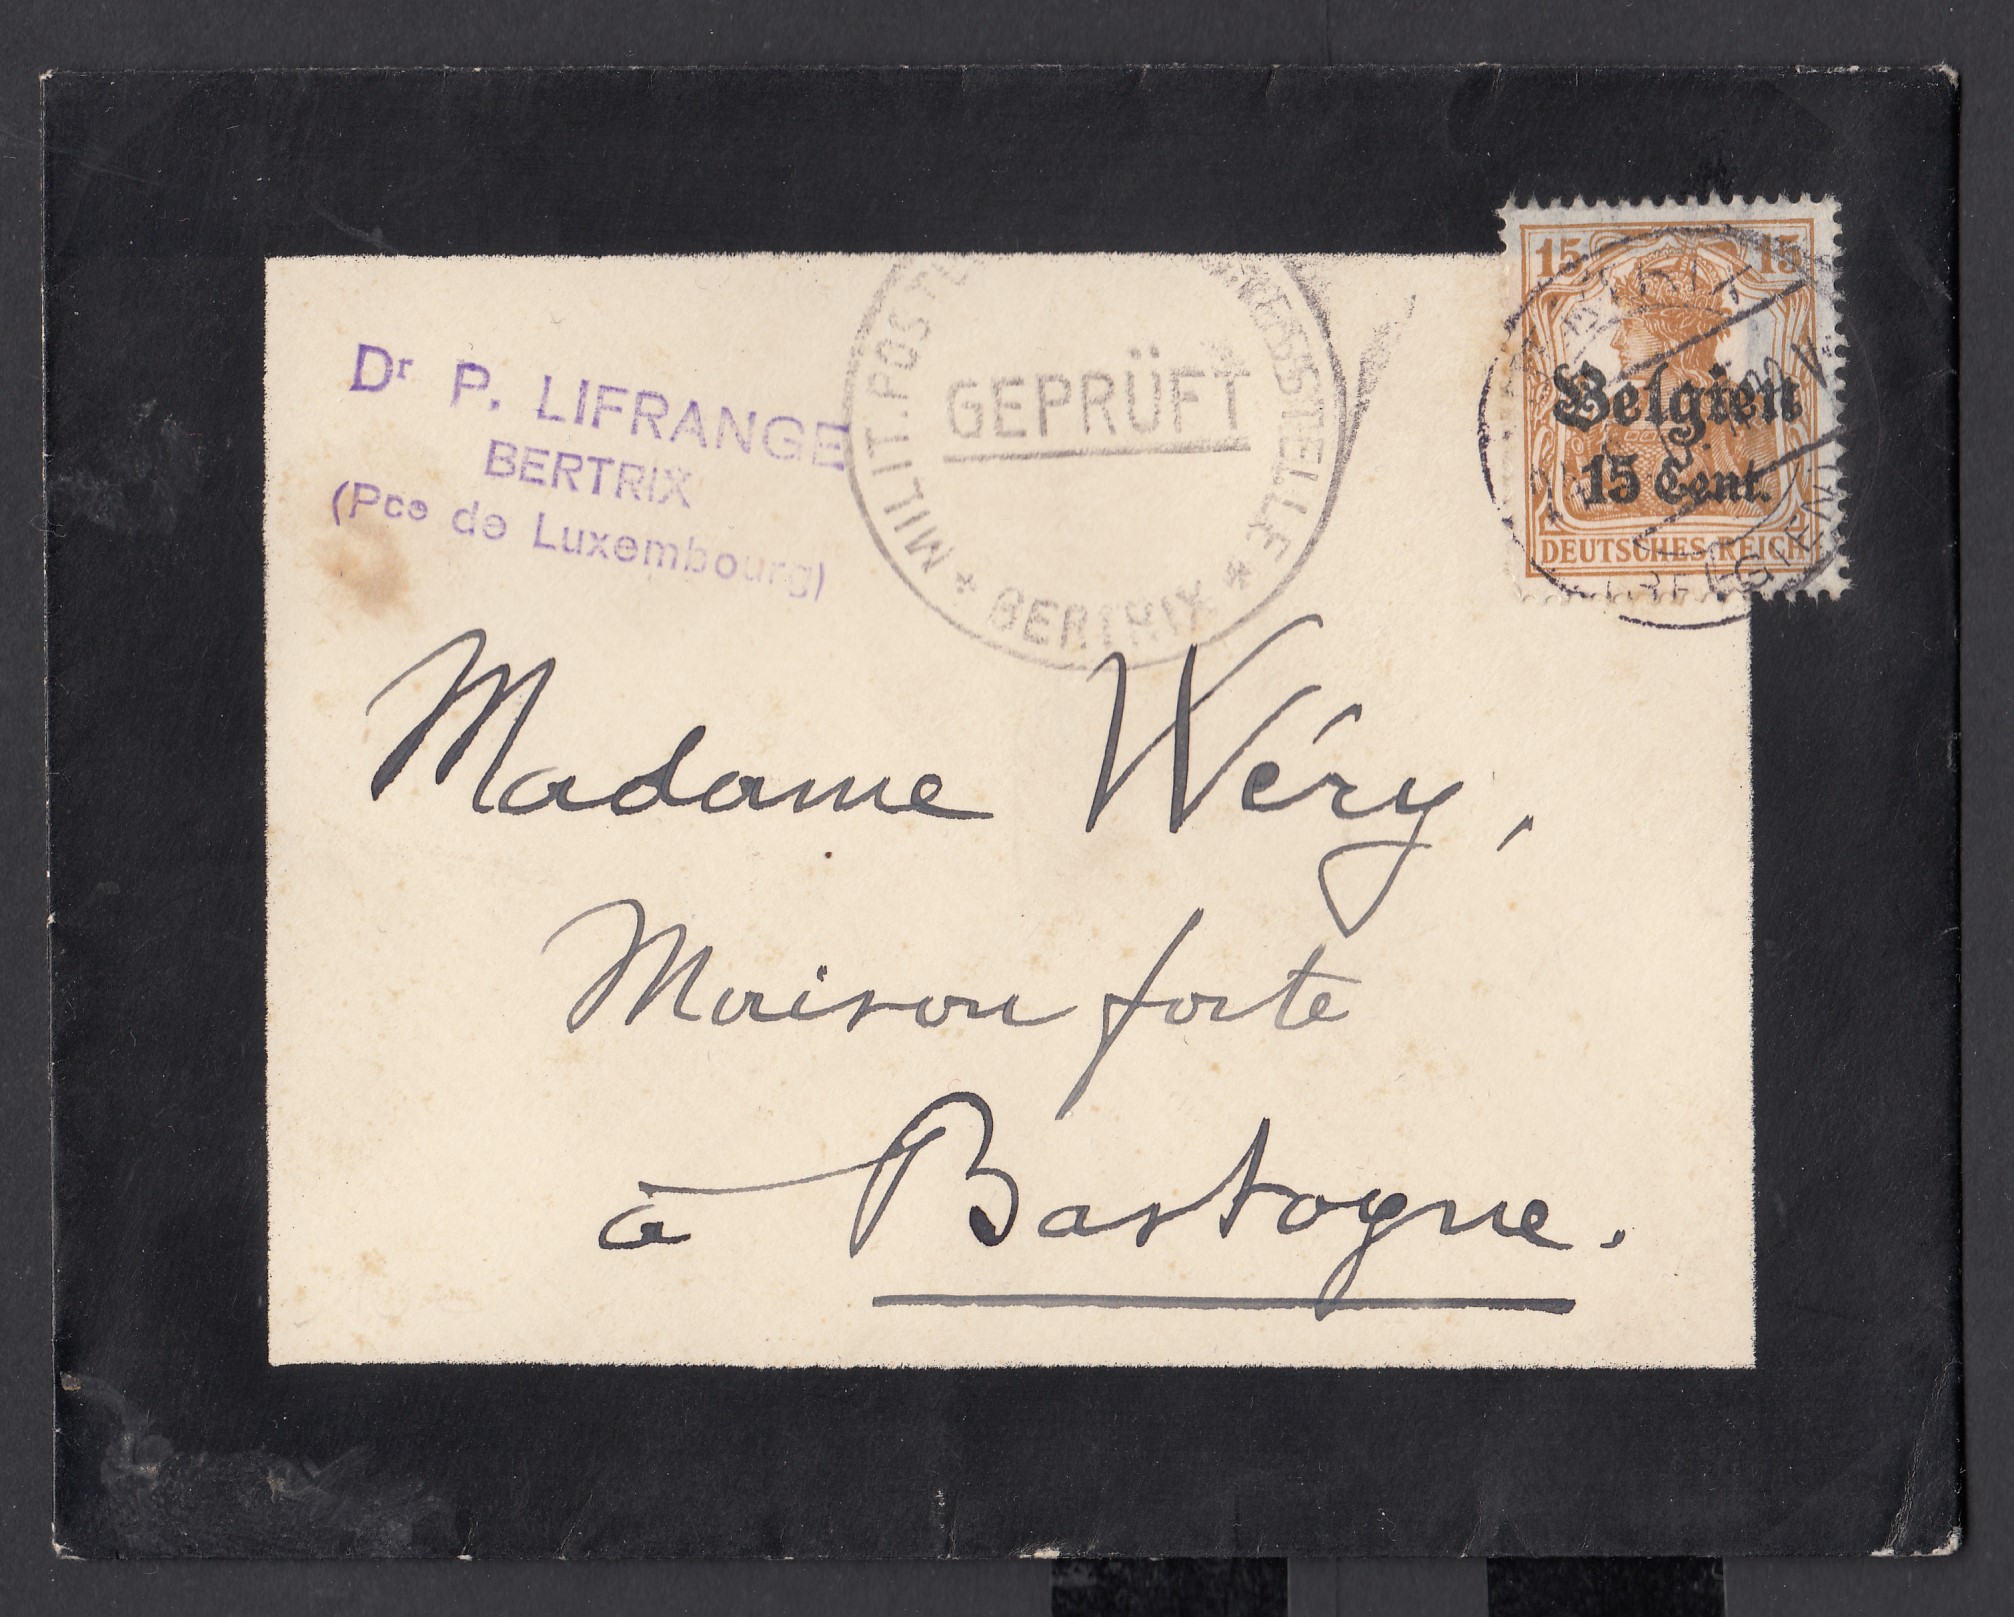 Dr P. LIFRANGE
BERTRIX
(Pce de Luxembourg)
MILIT. POST
GEPRÜFT
* BERTRIX *
15 15
Belgien
15 Cent.
DEUTSCHES REICH
Madame Wéry,
Maison forte
à Bastogne.